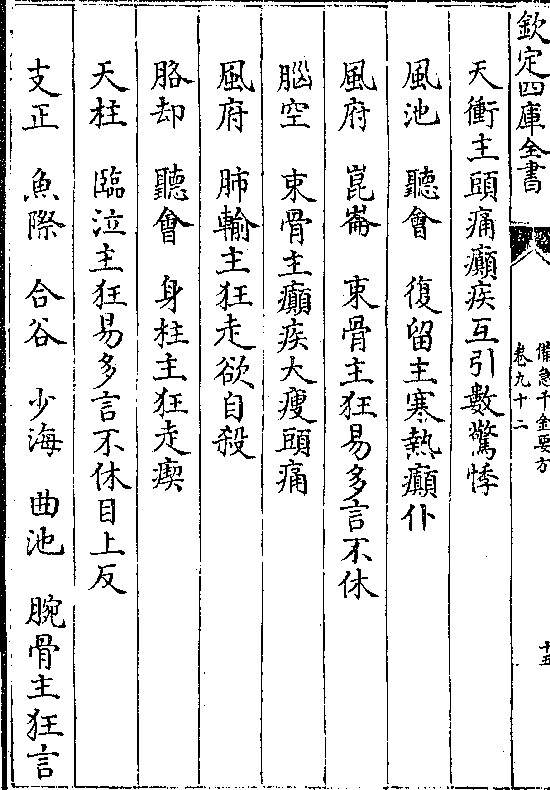 欽定四庫全書
備急千金要方
卷九十二
十五
天衝主頭痛癲疾互引數驚悸
風池 聽會 復留主寒熱癲仆
風府 崑崙 束骨主狂易多言不休
腦空 束骨主癲疾大瘦頭痛
風府 肺輸主狂走欲自殺
胳却 聽會 身柱主狂走瘈
天柱 臨泣主狂易多言不休目上反
支正 魚際 合谷 少海 曲池 腕骨主狂言